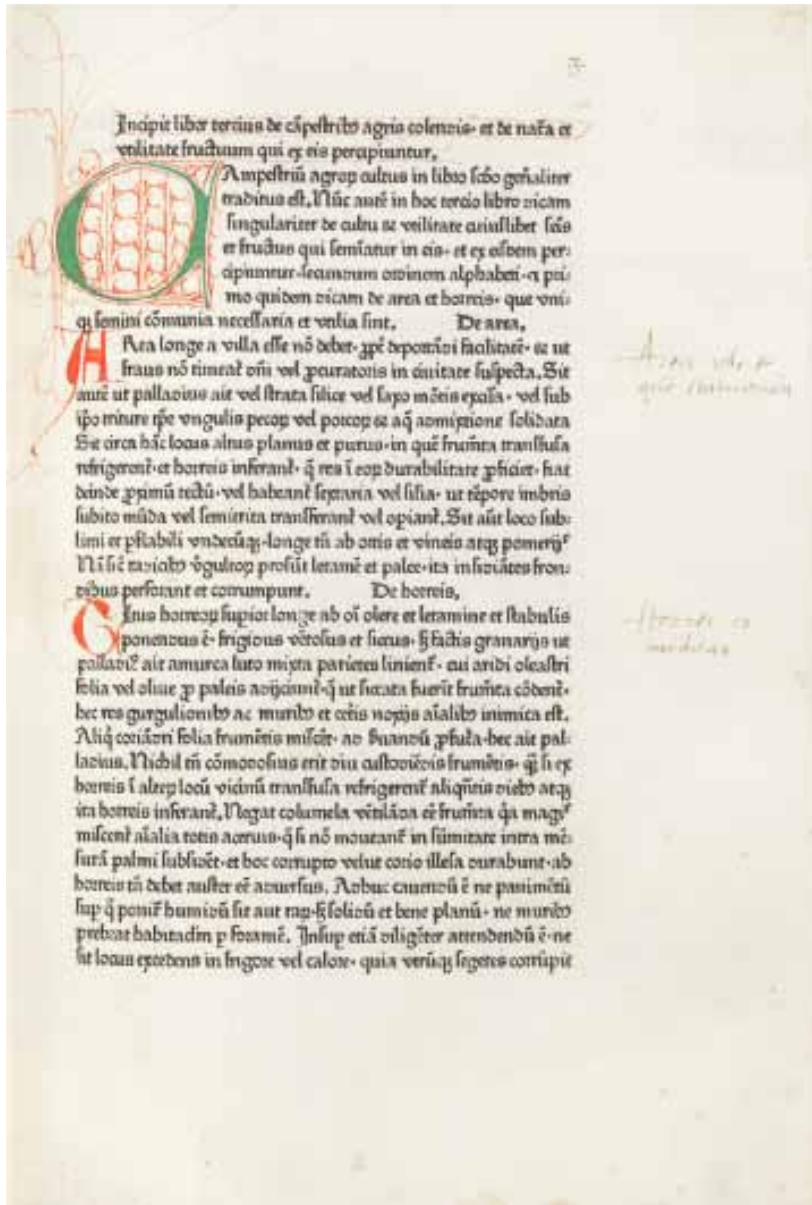 Incipit liber tercius de cãpestribꝰ agris colendis· et de nať̃a et
vtilitate fructuum qui ex eis percipiuntur.
CAmpestriũ agroꝝ cultus in libro scďo geñaliter
traditus est. Nũc autẽ in hoc tercio libro dicam
singulariter de cultu ac vtilitate cuiuslibet
et fructus qui semĩatur in eis· et ex eisdem per⸗
cipiuntur· secundum ordinem alphabeti· ⁊ pri⸗
mo quidem dicam de area et horreis· que vni⸗
cuiqꝫ semini cõmunia necessaria et vtilia sint. De area.
ARea longe a villa esse nõ debet· ꝓpť deportãdi facilitatẽ· ac ut
fraus nõ timeať dñi vel ꝓcuratoris in ciuitate suspecta. Sit
autẽ ut palladius ait vel strata silice vel saxo mõtis excisa· vel sub
ip̃o triture tp̃e vngulis pecoꝝ vel porcoꝝ ac aq̃ admixtione solidata
Sit circa hãc locus altus planus et purus· in quẽ frum̃ta transfusa
refrigerenť· et horreis inferanť· q̃ res ĩ eoꝝ durabilitate ꝓficiet· fiat
deinde ꝓximũ tectũ· vel habeant vel· ut tẽpore imbris
subito mũda vel semitrita transferanť vel opianť. Sit aũt loco sub⸗
limi et ꝑflabili vndecũqꝫ· longe tñ ab ortis et vineis atqꝫ pomerijs
Nã sic̃ radicibꝰ virgultoꝝ prosũt letamẽ et palee· ita insidiãtes fron⸗
dibus perforant et corrumpunt. De horreis.
SItus horreoꝝ supior longe ab oĩ olere et letamine et stabulis
ponendus ẽ· frigidus vẽtosus et siccus· ꝫ factis granarijs ut
palladiꝰ ait amurca luto mixta parietes linienť· cui aridi oleastri
folia vel oliue ꝓ paleis adijciunť· q̃ ut siccata fuerĩt frum̃ta cõdenť·
hec res gurgulionibꝰ ac muribꝰ et ceťis noxijs aĩalibꝰ inimica est.
Aliq̃ coriãdri folia frumẽtis miscẽt· ad ẜuandũ ꝓfuťa· hec ait pal⸗
ladius. Nichil tñ cõmodosius erit diu custodiẽdis frumẽtis· q̃ si ex
horreis ĩ alteꝝ locũ vicinũ transfusa refrigerenť aliq̃ntis diebꝰ atqꝫ
ita horreis inferanť. Negat columela vẽtilãda eẽ frum̃ta q̃a magis
miscenť aĩalia totis aceruis· q̃ si nõ moueanť in sũmitate intra mẽ⸗
surã palmi subsidẽt· et hoc corrupto velut corio illesa durabunt· ab
horreis tñ debet auster eẽ aduersus. Adhuc cauendũ ẽ ne pauimẽtũ
sup q̃ poniť humidũ sit aut raꝝ· ꝫ solidũ et bene planũ· ne muribꝰ
prebeat habitac̃lm p foramẽ. Insup etiã diligẽter attendendũ ẽ· ne
sit locus excedens in frigore vel calore· quia vtrũqꝫ segetes corrũpit